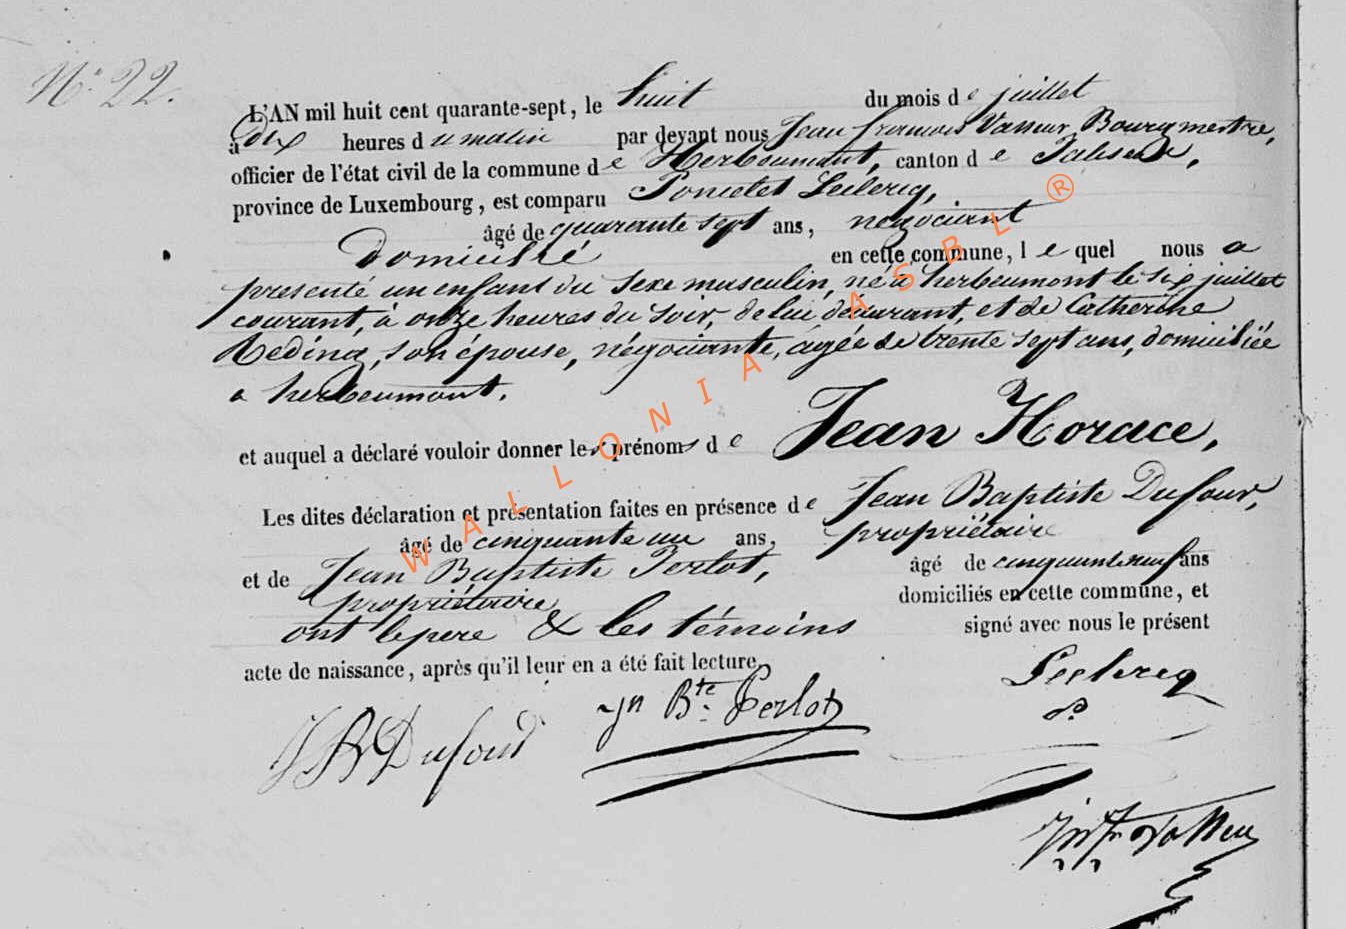 N° 22.
L'AN mil huit cent quarante-sept, le huit du mois de juillet
à dix heures du matin par devant nous Jean françois Vasseur Bourgmestre,
officier de l'état civil de la commune de Herbeumont, canton de Paliseul,
province de Luxembourg, est comparu Poncelet Leclercq,
âgé de quarante sept ans, negociant
domicilié en cette commune, lequel nous a
presenté un enfant du sexe masculin, né à herbeumont le six juillet
courant, à onze heures du soir, de lui déclarant, et de Catherine
Reding, son épouse, négociante, agée de trente sept ans, domiciliée
a herbeumont.
et auquel a déclaré vouloir donner les prénoms de Jean Horace,
Les dites déclaration et présentation faites en présence de Jean Baptiste Dufour,
âgé de cinquante un ans, propriétaire
et de Jean Baptiste Perlot, âgé de cinquante neuf ans
propriétaire domiciliés en cette commune, et
ont le pere & les témoins signé avec nous le présent
acte de naissance, après qu'il leur en a été fait lecture
Leclercq
JB Dufour
Jn Bte Perlot
WALLONIA ASBL ®